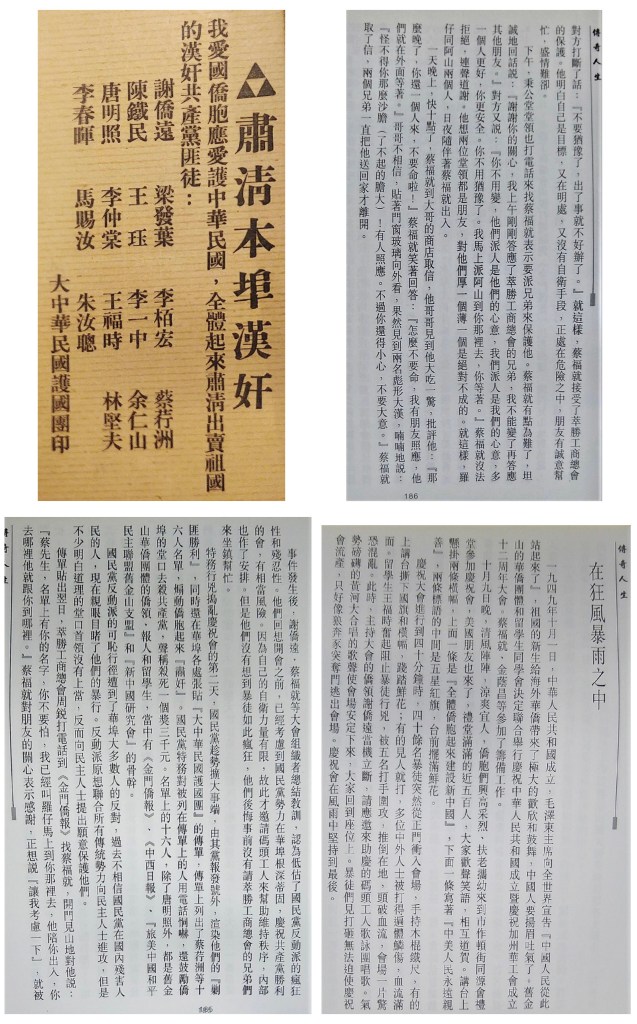 肅清本埠漢奸
我愛國僑胞應愛護中華民國，全體起來肅清出賣祖國
的漢奸共產黨匪徒：
謝僑遠 梁發葉 李栢宏 蔡荇洲
陳鐵民 王珏 李一中 余仁山
唐明照 李仲棠 王福時 林堅夫
李春暉 馬賜汝 朱汝聰
大中華民國護國團印
傳奇人生
對方打斷了話：『不要猶豫了，出了事就不好辦了。』就這樣，蔡福就接受了萃勝工商總會
的保護。他明白自己是目標，又在明處，又沒有自衛手段，正處在危險之中，朋友有誠意幫
忙，盛情難卻。
下午，秉公堂堂領也打電話來找蔡福就表示要派兄弟來保護他。蔡福就有點為難了，坦
誠地回話説：『謝謝你的關心，我上午剛剛答應了萃勝工商總會的兄弟，我不能變了再答應
其他朋友。』對方又説：『你不用變，他們派人是他們的心意，我們派人是我們的心意，多
一個人更好，你更安全。你不用猶豫了。我馬上派阿山到你那裡去，你等著。』蔡福就沒法
拒絕，連聲道謝。他想兩位堂領都是朋友，對他們厚一個薄一個是絕對不成的。就這樣，羅
仔同阿山兩個人，日夜隨伴著蔡福就出入。
一天晚上，快十點了，蔡福就到大哥的商店取信，他哥哥見到他大吃一驚，批評他：『那
麼晚了，你還一個人來，不要命啦！』蔡福就笑著回答：『怎麼不要命，我有朋友照應，他
們就在外面等著。』哥哥不相信，貼著門窗玻璃向外看，果然見到兩名彪形大漢，喃喃地説：
『怪不得你那麼沙膽（了不起的膽大）！有人照應。不過你還得小心，不要大意。』蔡福就
取了信，兩個兄弟一直把他送回家才離開。
186
事件發生後，謝僑遠，蔡福就等大會組織者總結教訓，認為低估了國民黨反動派的瘋狂
性和殘忍性。他們回想開會之前，已經考慮到國民黨勢力在華埠根深蒂固，慶祝共產黨勝利
的會，有相當風險。因為自己的自衛力量有限，故此才邀請碼頭工人來幫助維持秩序，內部
也作了安排。但是他們沒有想到暴徒如此瘋狂，他們後悔事前沒有請萃勝工商總會的兄弟們
來坐鎮幫忙。
特務行兇搗亂慶祝會的第二天，國民黨趁勢擴大事端，由其黨報發號外，渲染他們的『剿
匪勝利』，同時還在華埠各處張貼『大中華民國護國團』的傳單，傳單上列出了蔡荇洲等十
六人名單，煽動僑胞起來『肅奸』。國民黨特務對被列在傳單上的人用電話恫嚇，還鼓勵僑
埠的堂口去殺共產黨，聲稱殺死一個獎三千元。名單上的十六人，除了唐明照外，都是舊金
山華僑團體的僑領，報人和留學生，當中有《金門僑報》、《中西日報》、『旅美中國和平
民主聯盟舊金山支盟』和『新中國研究會』的骨幹。
國民黨反動派的可恥行徑遭到了華埠大多數人的反對，過去不相信國民黨在國內殘害人
民的人，現在親眼目睹了他們的暴行。反動派原想聯合所有傳統勢力向民主人士進攻，但是
不少明白道理的堂口首領沒有上當，反而向民主人士提出願意保護他們。
傳單貼出翌日，萃勝工商總會周銳打電話到《金門僑報》找蔡福就，開門見山地對他説：
『蔡先生，名單上有你的名字，你不要怕，我已經叫羅仔馬上到你那裡去，他陪你出入，你
去哪裡他就跟你到哪裡。』蔡福就對朋友的關心表示感謝，正想説『讓我考慮一下』，就被
傳奇人生
185
傳奇人生
在狂風暴雨之中
一九四九年十月一日，中華人民共和國成立，毛澤東主席向全世界宣告『中國人民從此
站起來了』。祖國的新生給海外華僑帶來了極大的歡欣和鼓舞，中國人要揚眉吐氣了。舊金
山的華僑團體和留學生同學會決定聯合舉行慶祝中華人民共和國成立暨慶祝加州華工會成立
十二周年大會，蔡福就、金蔭昌等參加了籌備工作。
十月九日晚，清風陣陣，涼爽宜人，僑胞們興高采烈，扶老攜幼來到市作頓街同源會禮
堂參加慶祝會，美國朋友也來了，禮堂滿滿的近五百人，大家歡聲笑語，相互道賀。講台上
懸掛兩條橫幅，上面一條是『全體僑胞起來建設新中國』，下面一條寫著『中美人民永遠親
善』，兩條標語的中間是五星紅旗，台前擺滿鮮花。
慶祝大會進行到四十分鐘時，四十餘名暴徒突然從正門衝入會場，手持木棍鐵尺，有的
上講台撕下國旗和橫幅，踐踏鮮花；有的見人就打，多位中外人士被打得遍體鱗傷，血流滿
面。留學生王福時奮起阻止暴徒行兇，被五名打手圍攻，推倒在地，頭破血流，會場一片驚
恐混亂。此時，主持大會的僑領謝僑遠當機立斷，請應邀來助慶的碼頭工人歌詠團唱歌。氣
勢磅礴的黃河大合唱的歌聲使會場安定下來，大家回到座位上。暴徒們見打砸無法迫使慶祝
會流產，只好像狼奔豕突奪門逃出會場。慶祝會在風雨中堅持到最後。